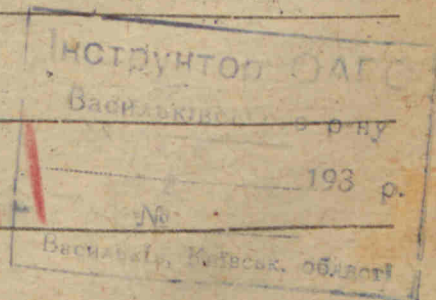 Інструнтор ОАГС
Васильківськ р-ну
193 р.
№
Васильків, Київськ. області